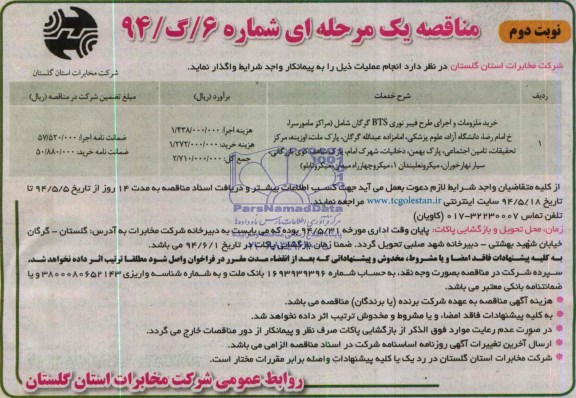 نوبت دوم
مناقصه یک مرحله ای شماره ۶/گ/۹۴
شرکت مخابرات استان گلستان
شرکت مخابرات استان گلستان در نظر دارد انجام عملیات ذیل را به پیمانکار واجد شرایط واگذار نماید.
ردیف شرح خدمات برآورد (ریال) مبلغ تضمین شرکت در مناقصه (ریال)
۱
خرید ملزومات و اجرای طرح فیبر نوری BTS گرگان شامل (مراکز مامورسرا،
خ امام رضا، دانشگاه آزاد، علوم پزشکی، امامزاده عبدالله گرگان، پارک ملت، اوزینه، مرکز
تحقیقات، تامین اجتماعی، پارک بهمن، دخانیات، شهرک امام،
سیار نهارخوران، میکرونعلبندان ۱، میکروچهارراه میهن،
هزینه اجرا: ۱/۴۳۸/۰۰۰/۰۰۰
هزینه خرید: ۱/۲۷۲/۰۰۰/۰۰۰
جمع کل: ۲/۷۱۰/۰۰۰/۰۰۰
ضمانت نامه اجرا: ۵۷/۵۲۰/۰۰۰
ضمانت نامه خرید: ۵۰/۸۸۰/۰۰۰
ParsNamadData
از کلیه متقاضیان واجد شرایط لازم دعوت بعمل می آید جهت کسب اطلاعات بیشتر و دریافت اسناد مناقصه به مدت ۱۴ روز از تاریخ ۹۴/۵/۵ تا
تاریخ ۹۴/۵/۱۸ سایت اینترنتی www.tcgolestan.ir مراجعه نمایند.
تلفن تماس ۳۲۲۳۰۰۰۷-۰۱۷ (کاویان)
زمان، محل تحویل و بازگشایی پاکات: پایان وقت اداری مورخه ۹۴/۵/۳۱ بوده که می بایست به دبیرخانه شرکت مخابرات به آدرس: گلستان - گرگان
خیابان شهید بهشتی - دبیرخانه شهد صلبی تحویل گردد. ضمنا زمان بازگشایی پاکات در تاریخ ۹۴/۶/۱ می باشد.
به کلیه پیشنهادات فاقد امضا و یا مشروط، مخدوش و پیشنهاداتی که بعد از انقضاء مدت مقرر در فراخوان واصل شود مطلقا ترتیب اثر داده نخواهد شد.
سپرده شرکت در مناقصه بصورت وجه نقد، به حساب شماره ۱۶۹۳۹۳۹۳۹۶ بانک ملت و به شماره شناسه واریزی ۳۸۰۰۰۸۰۶۵۲۱۴۳ و یا
ضمانتنامه بانکی معتبر می باشد.
هزینه آگهی مناقصه به عهده شرکت برنده (یا برندگان) مناقصه می باشد.
به کلیه پیشنهادات فاقد امضا، و یا مشروط و مخدوش ترتیب اثر داده نخواهد شد.
در صورت عدم رعایت موارد فوق الذکر از بازگشایی پاکات صرف نظر و پیمانکار از دور مناقصات خارج می گردد.
ارسال آخرین تغییرات آگهی روزنامه اساسنامه شرکت در اسناد مناقصه الزامی می باشد.
شرکت مخابرات استان گلستان در رد یک یا کلیه پیشنهادات واصله برابر مقررات مختار است.
روابط عمومی شرکت مخابرات استان گلستان